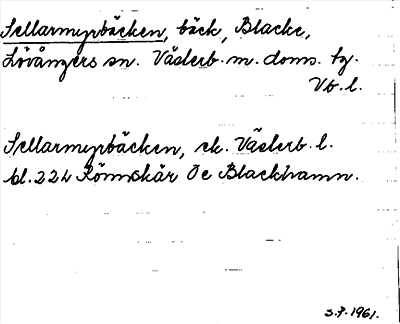 Sellarmyrbäcken, bäck, Blacke,
Lövångers sn. Västerb. m. doms. tg.
Vb. l.
Sellarmyrbäcken, ek. Västerb. l.
bl. 22 h Rönnskär Öe Blackhamn.
3.7.1961.